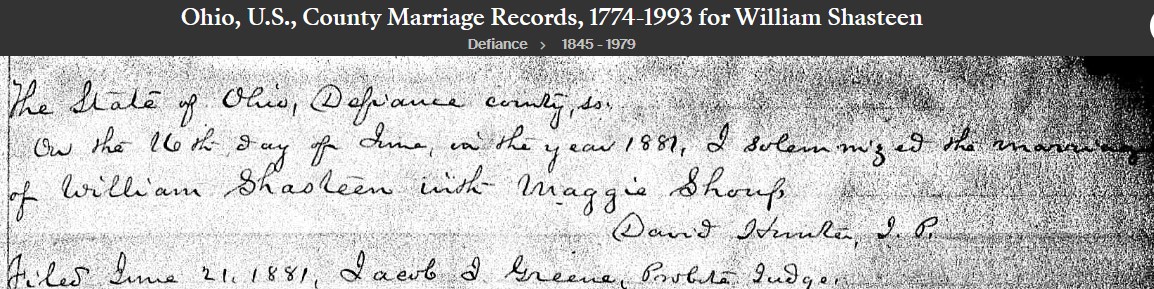 Ohio, U.S., County Marriage Records, 1774-1993 for William Shasteen
Defiance > 1845 - 1979
The State of Ohio, Defiance county, ss.
On the 16th day of June, in the year 1881, I solemnized the marriage
of William Shasteen with Maggie Shoup
David Hunter, J. P.
Filed June 21, 1881, Jacob J. Greene, Probate Judge.